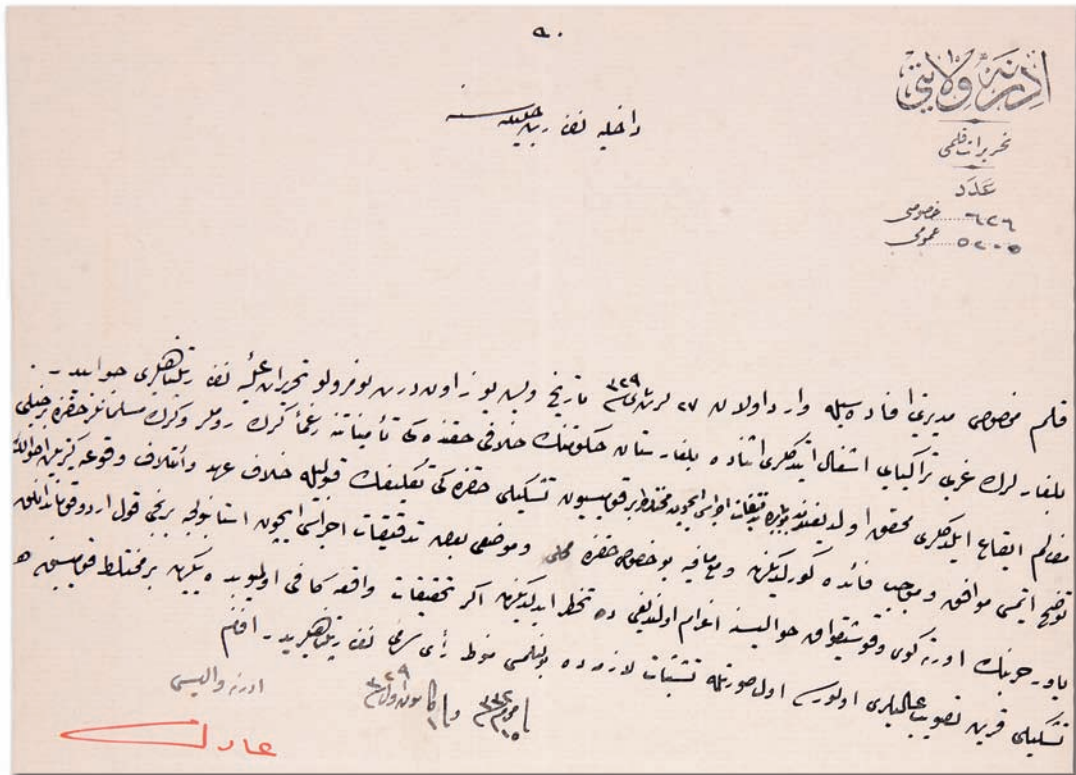 ٩٠
ادرنه ولايتی
تحريرات قلمی
عدد
خصوصی ٦٢٦
عمومی ٥٢٠٥
داخليه نظارت جليله سنه
قلم مخصوص مديريتی افاده سيله وارد اولان ٢٧ تشرين ثانی ٣٢٩ تاريخ و بش يوز اون درت نومرولو تحريرات عليۀ نظارتپناهيلری جوابيدر .
بلغارلرك غربی تراكيايی اشغال ايتدكلری اثناده بلغارستان حكومتنك خلافی حقنده كی تأميناتنه رغماً كرك روملر و كرك مسلمانلر حقنده بر خيلی
مظالم ايقاع ايلدكلری محقق اولديغندن بوبابده تدقيقات اجراسی ايچون مختلط بر قوميسيون تشكيلی حقنده كی تكليفك قبوليله خلاف عهد و ائتلاف وقوعه كتيريلن احوالك
توضيح ايتمسی موافق و موجب فائده كورلديكنی و مع مافيه بو خصوص حقنده محلی و موضعی بعض تدقيقات اجراسی ايچون استانبولجه برنجی قول اردو قوماندانلغی
ياور حربنك اورته كوی و قوشيقواق حواليسنه اعزام اولنديغی ده تخطر ايدلديكنی اكر تحقيقات واقعه كافی اولميوبده يكيدن بر مختلط قوميسيون
تشكيلی قرين تصويب عاليلری اولورسه اول صورتله تشبثات لازمه ده بولنلمسی منوط رأی سامئ نظارتپناهيلريدر . افندم
١٥ محرم ٣٣٢ و ١ كانون اول ٣٢٩
ادرنه واليسی
عادل